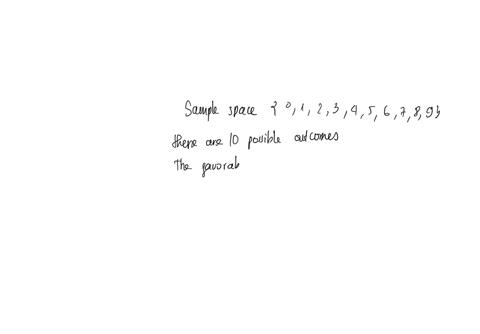 Sample space { 0, 1, 2, 3, 4, 5, 6, 7, 8, 9}
there are 10 possible outcomes
The favorab